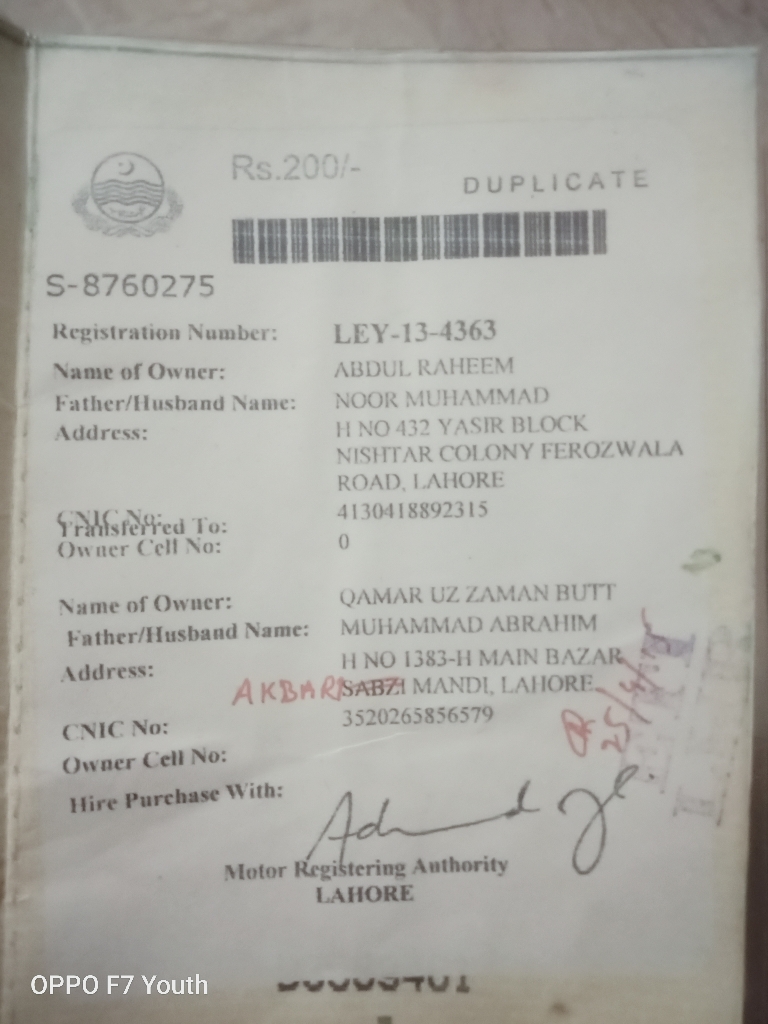 Rs.200/-
DUPLICATE
S-8760275
Registration Number: LEY-13-4363
Name of Owner: ABDUL RAHEEM
Father/Husband Name: NOOR MUHAMMAD
Address: H NO 432 YASIR BLOCK
NISHTAR COLONY FEROZWALA
ROAD, LAHORE
CNIC No: 4130418892315
Transferred To:
Owner Cell No: 0
Name of Owner: QAMAR UZ ZAMAN BUTT
Father/Husband Name: MUHAMMAD ABRAHIM
Address: H NO 1383-H MAIN BAZAR
AKBARI SABZI MANDI, LAHORE
CNIC No: 3520265856579
Owner Cell No:
Hire Purchase With:
Motor Registering Authority
LAHORE
OPPO F7 Youth